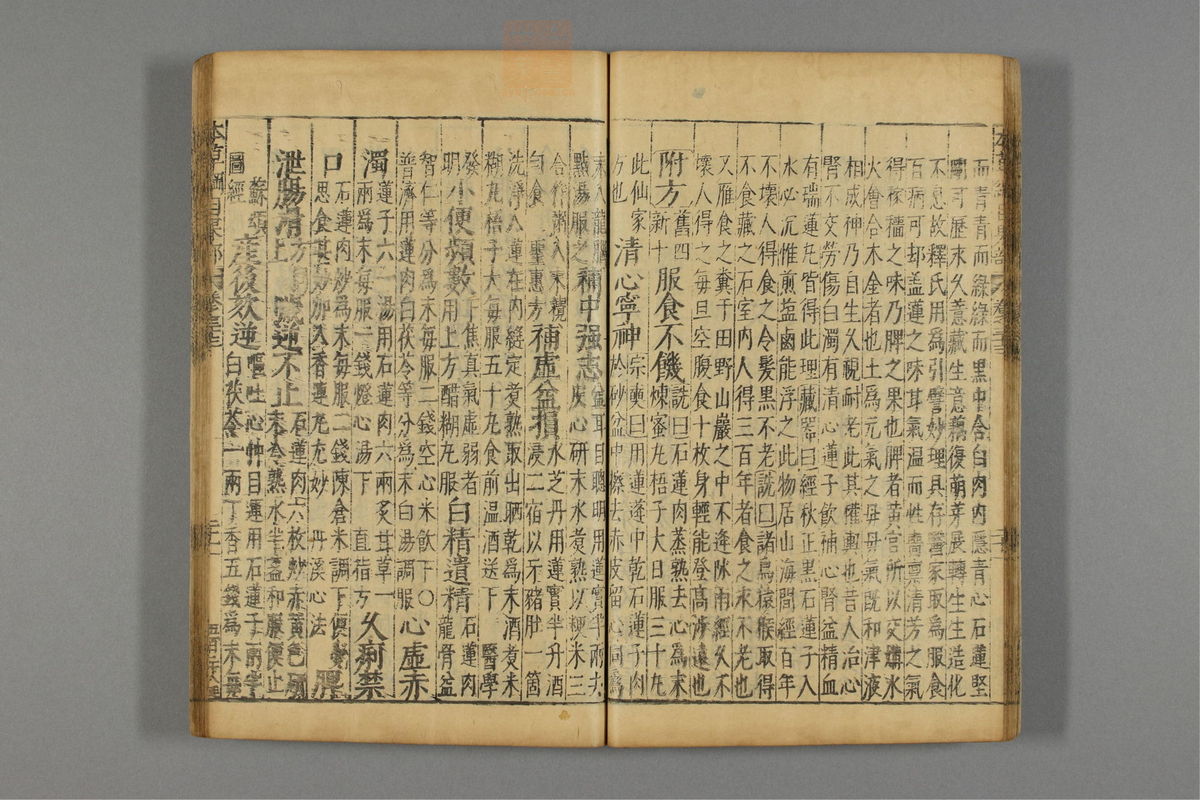 而青青而綠綠而黑中含白肉內隱青心石蓮堅
剛可歷永久薏藏生意藕復萌芽展轉生生造化
不息故釋氏用為引譬妙理具存醫家取為服食
百病可却蓋蓮之味甘氣温而性嗇稟清芳之氣
得稼穡之味乃脾之果也脾者黃宮所以交媾水
火會合木金者也土為元氣之母母氣既和津液
相成神乃自生久視耐老此其權輿也昔人治心
腎不交勞傷白濁有清心蓮子飲補心腎益精血
有瑞蓮丸皆得此理藏器曰經秋正黑石蓮子入
水必沉惟煎鹽鹵能浮之此物居山海間經百年
不壞人得食之令髮黑不老詵曰諸鳥猿猴取得
不食藏之石室內人得三百年者食之永不老也
又雁食之糞于田野山巖之中不逢陰雨經久不
壞人得之每旦空腹食十枚身輕能登高涉遠也
附方舊四新十服食不饑詵曰石蓮肉蒸熟去心為末煉蜜丸梧子大日服三十丸
此仙家方也清心寧神宗奭曰用蓮蓬中乾石蓮子肉於砂盆中擦去赤皮留心同為
末入龍腦點湯服之補中强志益耳目聰明用蓮實半兩去皮心研末水煮熟以粳米三
合作粥入末攪勻食聖惠方補虛益損水芝丹用蓮實半升酒浸二宿以牙豬肚一箇
洗淨入蓮在內縫定煮熟取出晒乾為末酒煮米
糊丸梧子大每服五十丸食前温酒送下醫學
發明小便頻數下焦真氣虛弱者用上方醋糊丸服白精遺精石蓮肉龍骨益
智仁等分為末每服二錢空心米飲下○
普濟用蓮肉白茯苓等分為末白湯調服心虛赤
濁蓮子六一湯用石蓮肉六兩炙甘草一兩為末每服一錢燈心湯下直指方久痢禁
口石蓮肉炒為末每服二錢陳倉米調下便思食甚妙加入香連丸尤妙丹溪心法脾
泄腸滑方同上噦逆不止石蓮肉六枚炒赤黃色研末冷熟水半盞和服便止
蘇頌圖經產後欬逆嘔吐心忡目運用石蓮子兩半白茯苓一兩丁香五錢為末每